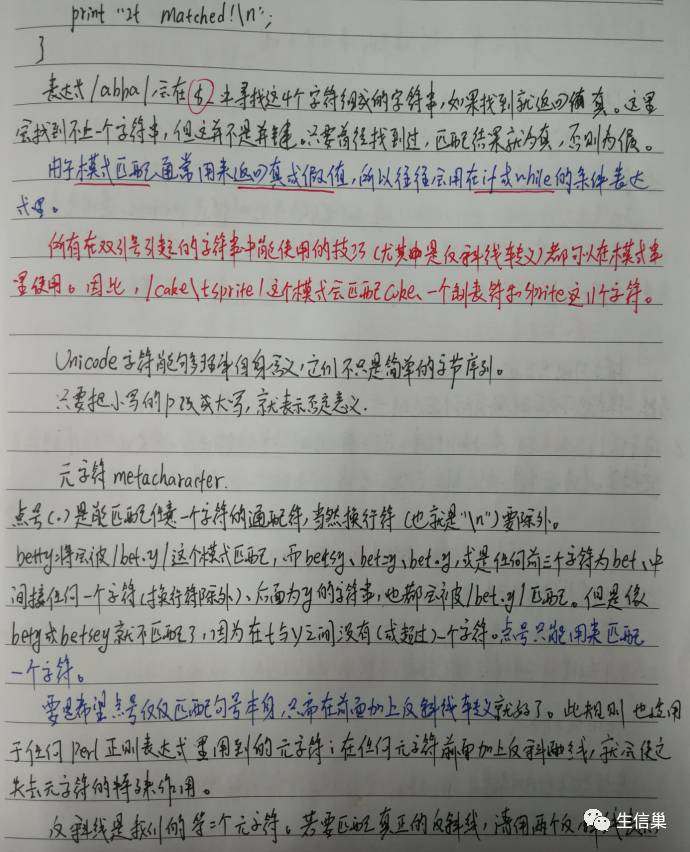 print "It matched!\n";
}
表达式/abba/会在$_里寻找这4个字符组成的字符串,如果找到就返回值真。这里
会找到不止一个字符串,但这并不是关键。只要曾经找到过,匹配结果就为真,否则为假。
由于模式匹配通常用来返回真或假值,所以往往会用在if或while的条件表达
式里。
所有在双引号引起的字符串中能使用的技巧(尤其是反斜线转义)都可以在模式串
里使用。因此,/cake\tsprite/这个模式会匹配cake、一个制表符和sprite这11个字符。
Unicode字符能够 自身含义,它们不只是简单的字节序列。
只要把小写的p改成大写,就表示否定意义.
元字符 metacharacter.
点号(.)是能匹配任意一个字符的通配符,当然换行符(也就是"\n")要除外。
betty将会被/bet.y/这个模式匹配,而betsy、bet=y、bet.y,或是任何前三个字符为bet、中
间接任何一个字符(换行符除外)、后面为y的字符串,也都会被/bet.y/匹配。但是像
bety或betsey就不匹配了,因为在t与y之间没有(或超过)一个字符。点号只能用来匹配
一个字符。
要是希望点号仅仅匹配句号本身,只需在前面加上反斜线转义就好了。此规则也适用
于任何Perl正则表达式里用到的元字符:在任何元字符前面加上反斜线,就会使之
失去元字符的特殊作用。
反斜线是我们的第二个元字符。若要匹配真正的反斜线,请用两个反
生信巢